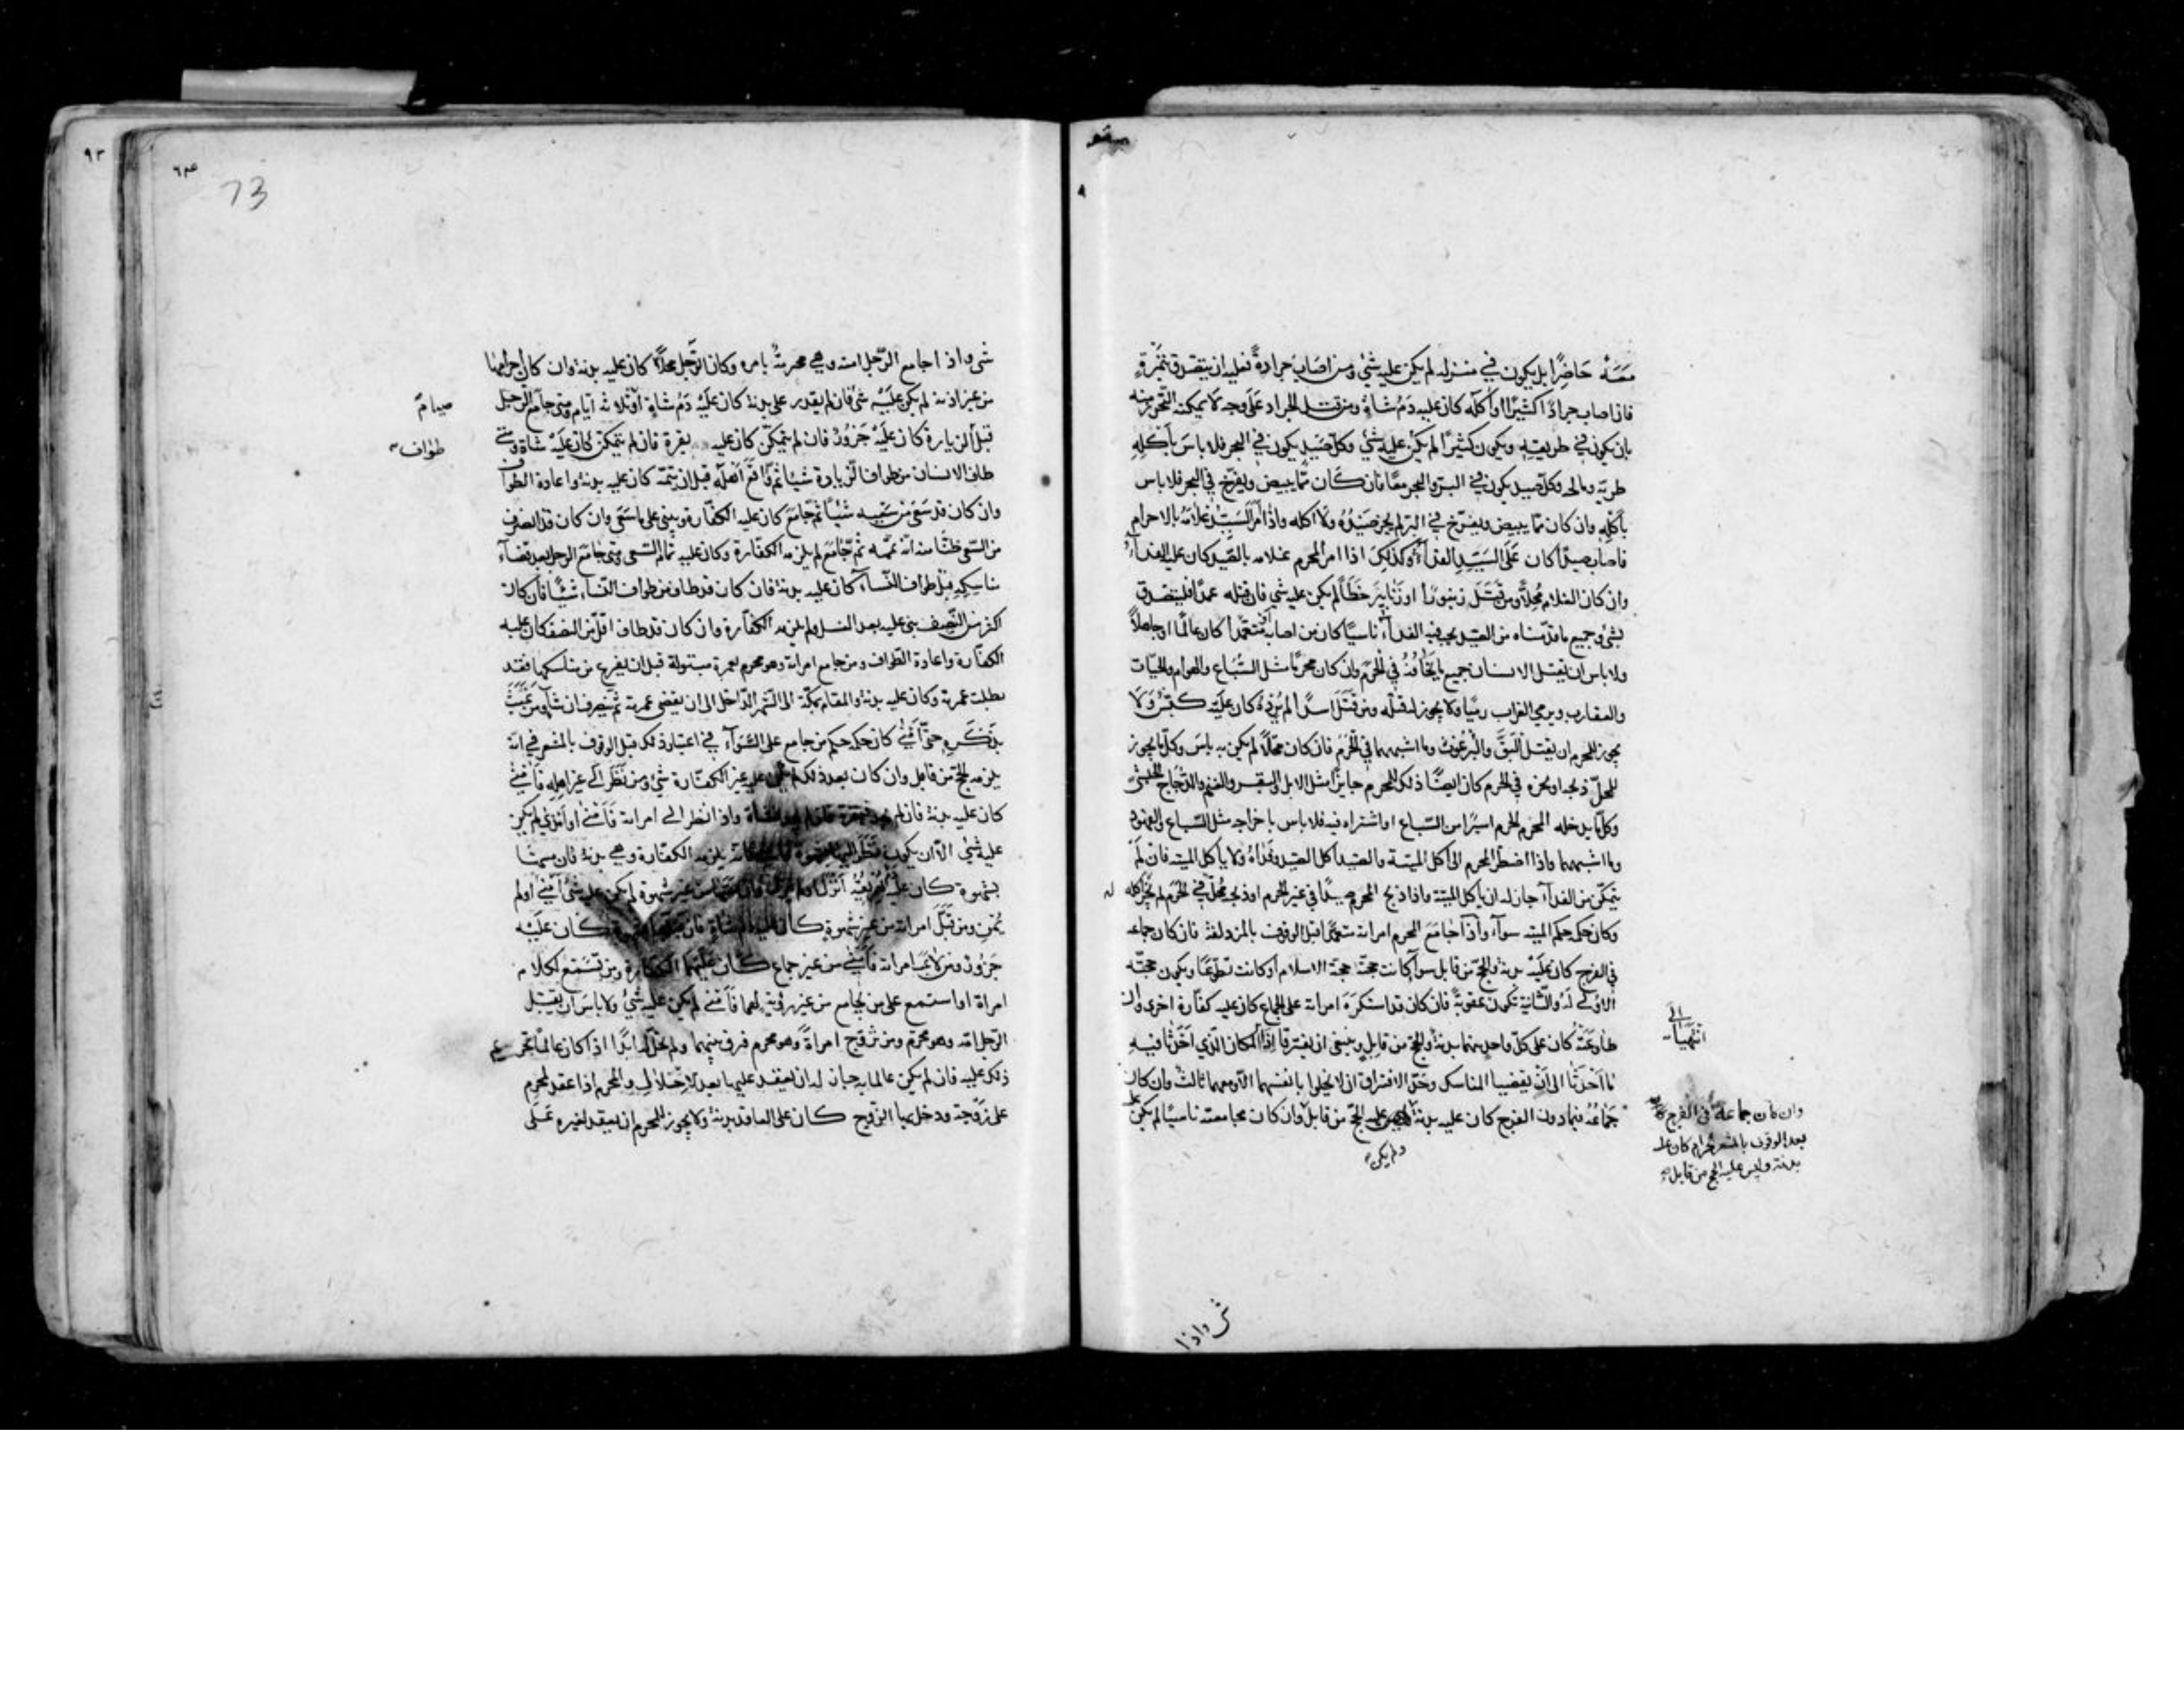 معه حاضرا بل يكون في منزله لم يكن عليه شئ ومن اصاب جرادة فعليه ان يتصدق بتمرة
فان اصاب جرادا كثيرا او اكله كان عليه دم شاة ومن قتل الجراد على وجه لا يمكنه التحرز منه
بان يكون في طريقه ويكون كثيرا لم يكن عليه شئ وكل صيد يكون في البحر فلا باس باكله
طريه ومالحه وكل صيد يكون في البر والبحر معا فان كان مما يبيض ويفرخ في البحر فلا باس
باكله وان كان مما يبيض ويفرخ في البر لم يجز صيده ولا اكله واذا امر السيد غلامه بالاحرام
فاصاب صيدا كان على السيد الفداء وكذلك اذا امر المحرم غلامه بالصيد كان عليه الفداء
وان كان الغلام محلا ومن قتل زنبورا او زنابير خطأ لم يكن عليه شئ فان قتله عمدا فليتصدق
بشئ وجميع ما قدمناه من الصيد يجب فيه الفداء ناسيا كان من اصابه او متعمدا كان عالما او جاهلا
ولا باس ان يقتل الانسان جميع ما يخافه في الحرم وان كان محرما مثل السباع والهوام والحيات
والعقارب ويرمي الغراب رميا ولا يجوز له قتله ومن قتل اسدا لم يرده كان عليه كبش ولا
يجوز للمحرم ان يقتل البق والبرغوث وما اشبههما في الحرم فان كان محلا لم يكن به باس وكل ما يجوز
للمحل ذبحه او نحره في الحرم كان ايضا ذلك للمحرم جايزا مثل الابل والبقر والغنم والدجاج الحبشي
وكل ما يدخله المحرم الحرم اسيرا من السباع او اشتراه فيه فلا باس باخراجه مثل السباع والفهود
وما اشبههما واذا اضطر المحرم الى اكل الميتة والصيد اكل الصيد وفداه ولا ياكل الميته فان لم
يتمكن من الفداء جاز له ان ياكل الميتة واذا ذبح المحرم صيدا في غير الحرم او ذبحه محل في الحرم لم يجز اكله
وكان حكمه حكم الميته سواء واذا جامع المحرم امراته متعمدا قبل الوقوف بالمزدلفة فان كان جماعه
في الفرج كان عليه بدنة والحج من قابل سواء كانت حجته حجة الاسلام او كانت تطوعا ويكون حجته
الاولى له والثانية تكون عقوبة فان كان قد استكره امراته على الجماع كان عليه كفارة اخرى وان
طاوعته كان على كل واحد منهما بدنة والحج من قابل وينبغي ان يفترقا اذا انتهيا الى المكان الذي احدثا فيه
ما احدثا الى ان يقضيا المناسك وحد الافتراق ان لا يخلوا بانفسهما الا ومعهما ثالث وان كان
جماعه فيما دون الفرج كان عليه بدنة ولم يكن عليه الحج من قابل وان كان مجامعته ناسيا لم يكن عليه
وان كان جماعه في الفرج
بعد الوقوف بالمشعر الحرام كان عليه
بدنة وليس عليه الحج من قابل
شئ واذا
٩٣
73
شئ واذا جامع الرجل امته وهي محرمة بامره وكان الرجل محلا كان عليه بدنة وان كان احرامها
من غير اذنه لم يكن عليه شئ فان لم يقدر على بدنة كان عليه دم شاة او ثلاثة ايام ومتى جامع الرجل
صيام
قبل الزيارة كان عليه جزور فان لم يتمكن كان عليه بقرة فان لم يتمكن كان عليه شاة ومتى
طواف
طاف الانسان من طواف الزيارة شيئا ثم واقع اهله قبل ان يتمه كان عليه بدنة واعادة الطواف
وان كان قد سعى من سعيه شيئا ثم جامع كان عليه الكفارة ويبني على ما سعى وان كان قد انصرف
من السعي ظنا منه انه تممه ثم جامع لم يلزمه الكفارة وكان عليه تمام السعي ومتى جامع الرجل بعد قضاء
مناسكه قبل طواف النساء كان عليه بدنة فان كان قد طاف من طواف النساء شيئا فان كان
اكثر من النصف بنى عليه بعد الغسل ولم يلزمه الكفارة وان كان قد طاف اقل من النصف كان عليه
الكفارة واعادة الطواف ومن جامع امراته وهو محرم بعمرة مبتولة قبل ان يفرغ من مناسكها فقد
بطلت عمرته وكان عليه بدنة والمقام بمكة الى الشهر الداخل الى ان يقضي عمرته ثم ينصرف ان شاء ومن عبث
بذكره حتى امنى كان حكمه حكم من جامع على السواء في اعتبار ذلك قبل الوقوف بالمشعر في انه
يلزمه الحج من قابل وان كان بعد ذلك لم يكن عليه غير الكفارة شئ ومن نظر الى غير اهله فامنى
كان عليه بدنة فان لم يجد فبقرة فان لم يجد فشاة واذا نظر الى امراته فامنى او امذى لم يكن
عليه شئ الا ان يكون نظر اليها بشهوة فامنى فانه يلزمه الكفارة وهي بدنة فان مسها
بشهوة كان عليه انزل او لم ينزل فان مسها من غير شهوة لم يكن عليه شئ امنى او لم
يمن ومن قبل امراته من غير شهوة كان عليه دم شاة فان قبلها بشهوة كان عليه
جزور ومن لاعب امراته فامنى من غير جماع كان عليهما الكفارة ومن تسمع لكلام
امراة او استمع على من يجامع من غير رؤية لهما فامنى لم يكن عليه شئ ولا باس ان يقبل
الرجل امه وهو محرم ومن تزوج امراة وهو محرم فرق بينهما ولم تحل له ابدا اذا كان عالما بتحريم
ذلك عليه فان لم يكن عالما به جاز له ان يعقد عليها بعد الاحلال والمحرم اذا عقد لمحرم
على زوجة ودخل بها الزوج كان على العاقد بدنة ولا يجوز للمحرم ان يعقد لغيره على